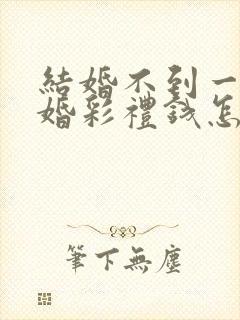 結婚不到一
婚彩禮錢怎
筆下無塵